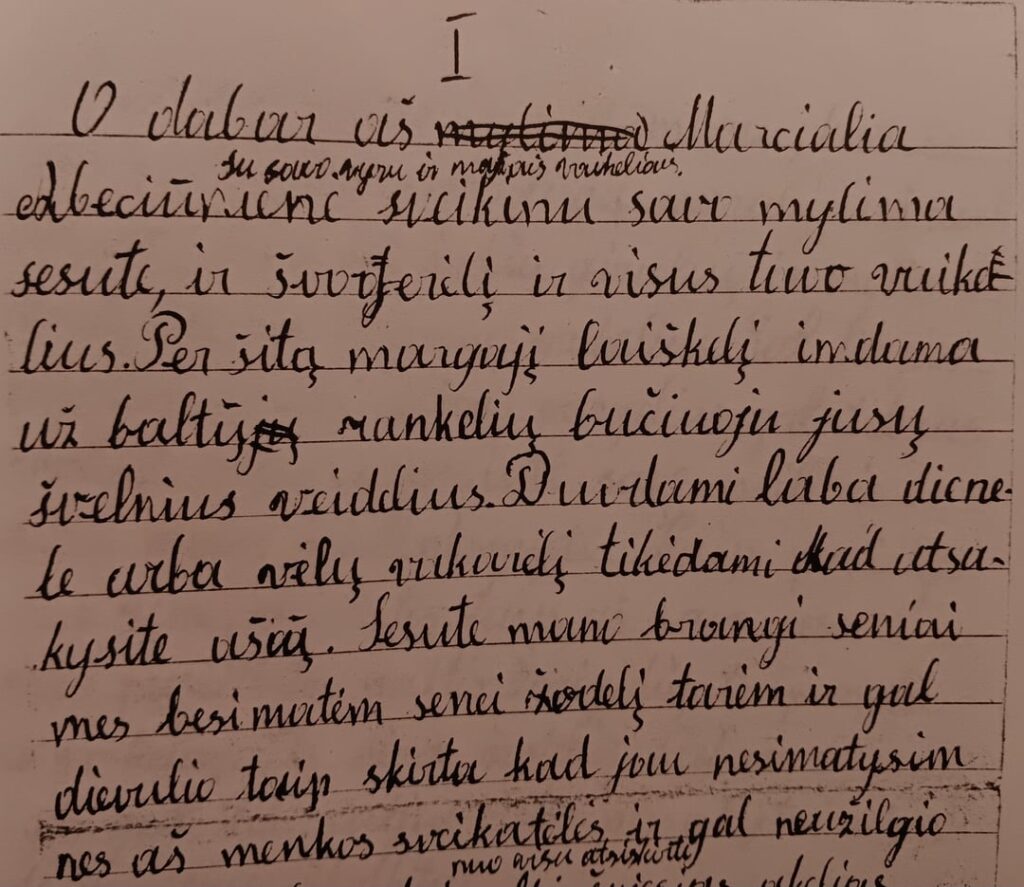 I
O dabar aš mylima Marcialia
su savo vyru ir mažais vaikeliais.
sveikinu savo mylima
sesute, ir švogerėlį ir visus tavo vaikė
lius. Per šitą margąjį laiškelį imdama
už baltųjų rankelių bučiuoju jusų
švelnius veidelius. Duodami laba diene-
le arba vėlų vakarėlį tikėdami kad atsa-
kysite ačią. Sesute mano brangi seniai
mes besimatėm senei žodelį tarėm ir gal
dievulio taip skirta kad jau nesimatysim
nes aš menkos sveikatėlės ir gal neužilgio
nuo visu atsiskirti